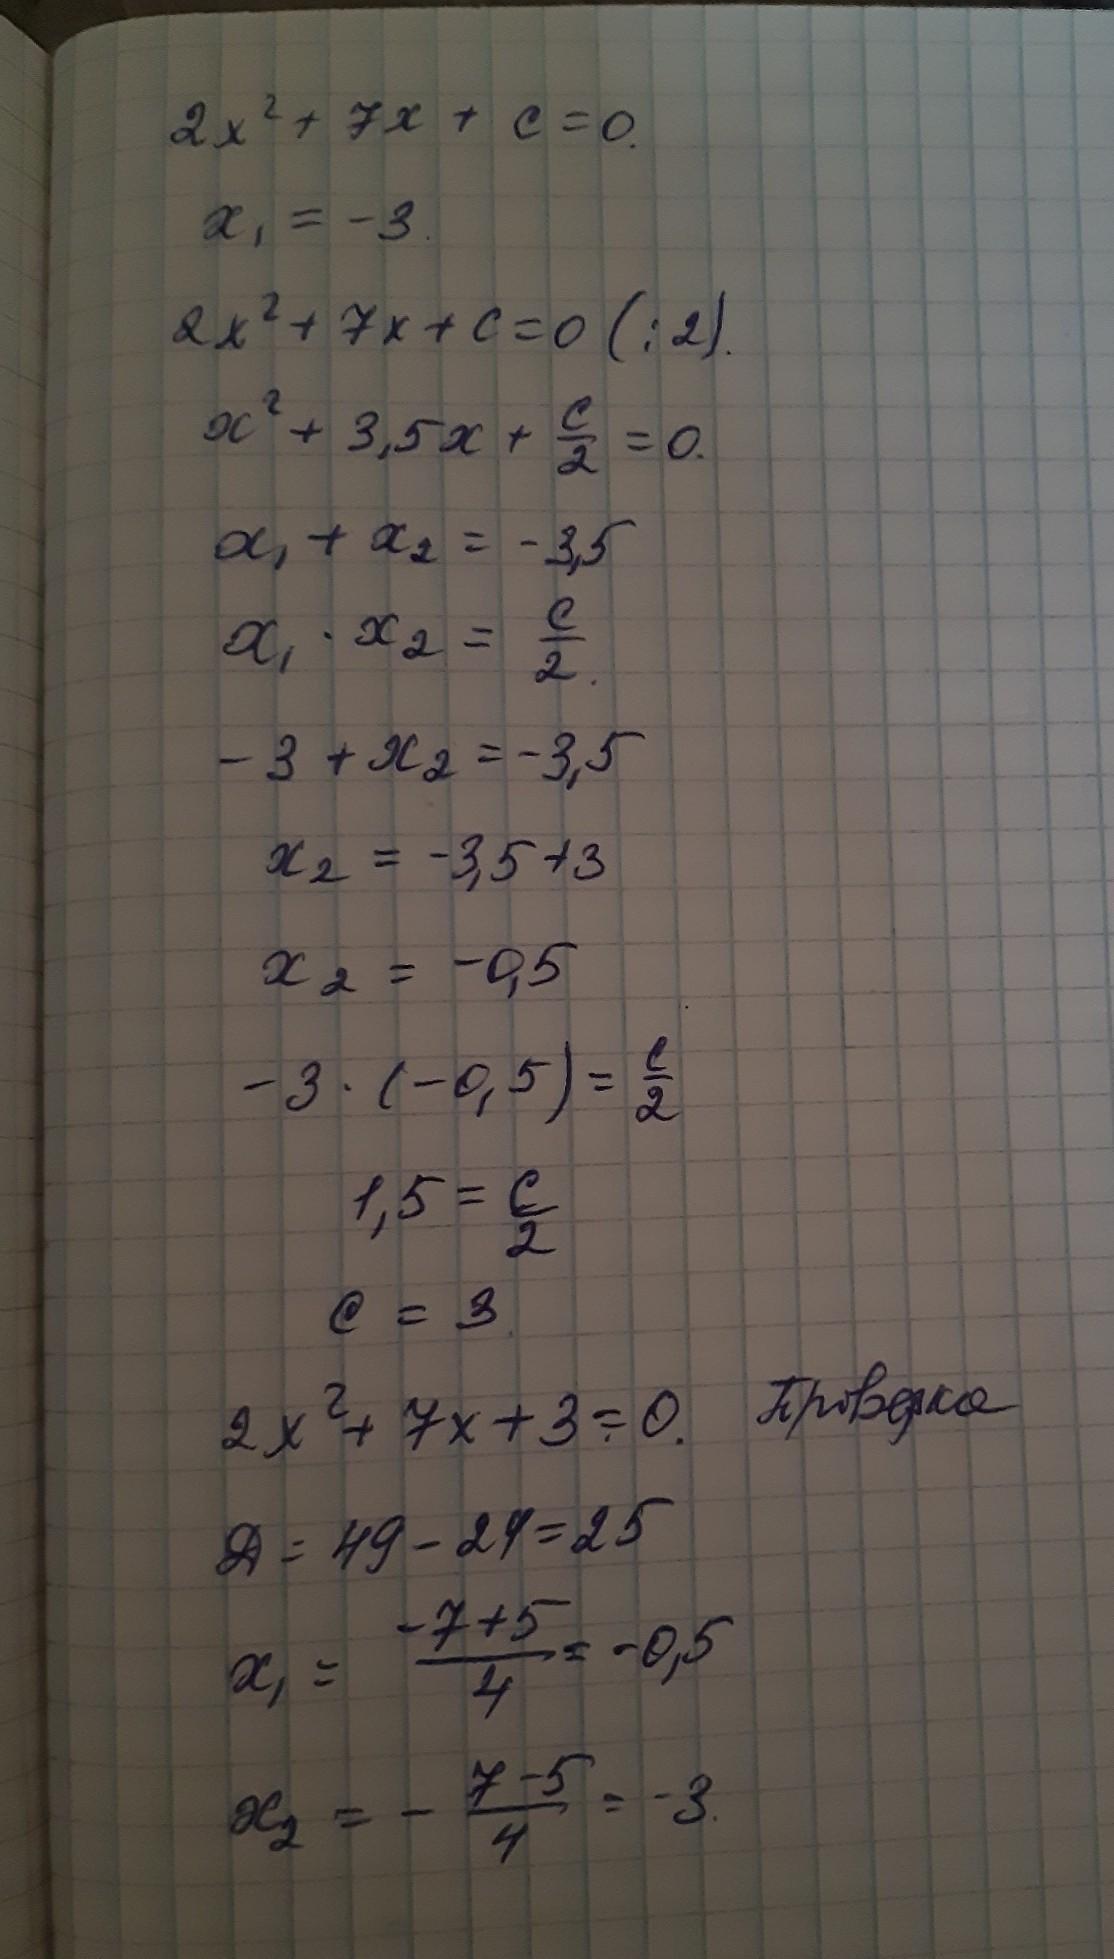 2x² + 7x + c = 0.
x₁ = -3.
2x² + 7x + c = 0 (:2).
x² + 3,5x + c/2 = 0.
x₁ + x₂ = -3,5
x₁ · x₂ = c/2.
-3 + x₂ = -3,5
x₂ = -3,5 + 3
x₂ = -0,5
-3 · (-0,5) = c/2
1,5 = c/2
c = 3.
2x² + 7x + 3 = 0. Проверка
Д = 49 - 24 = 25
x₁ = (-7+5)/4 = -0,5
x₂ = - (7-5)/4 = -3.